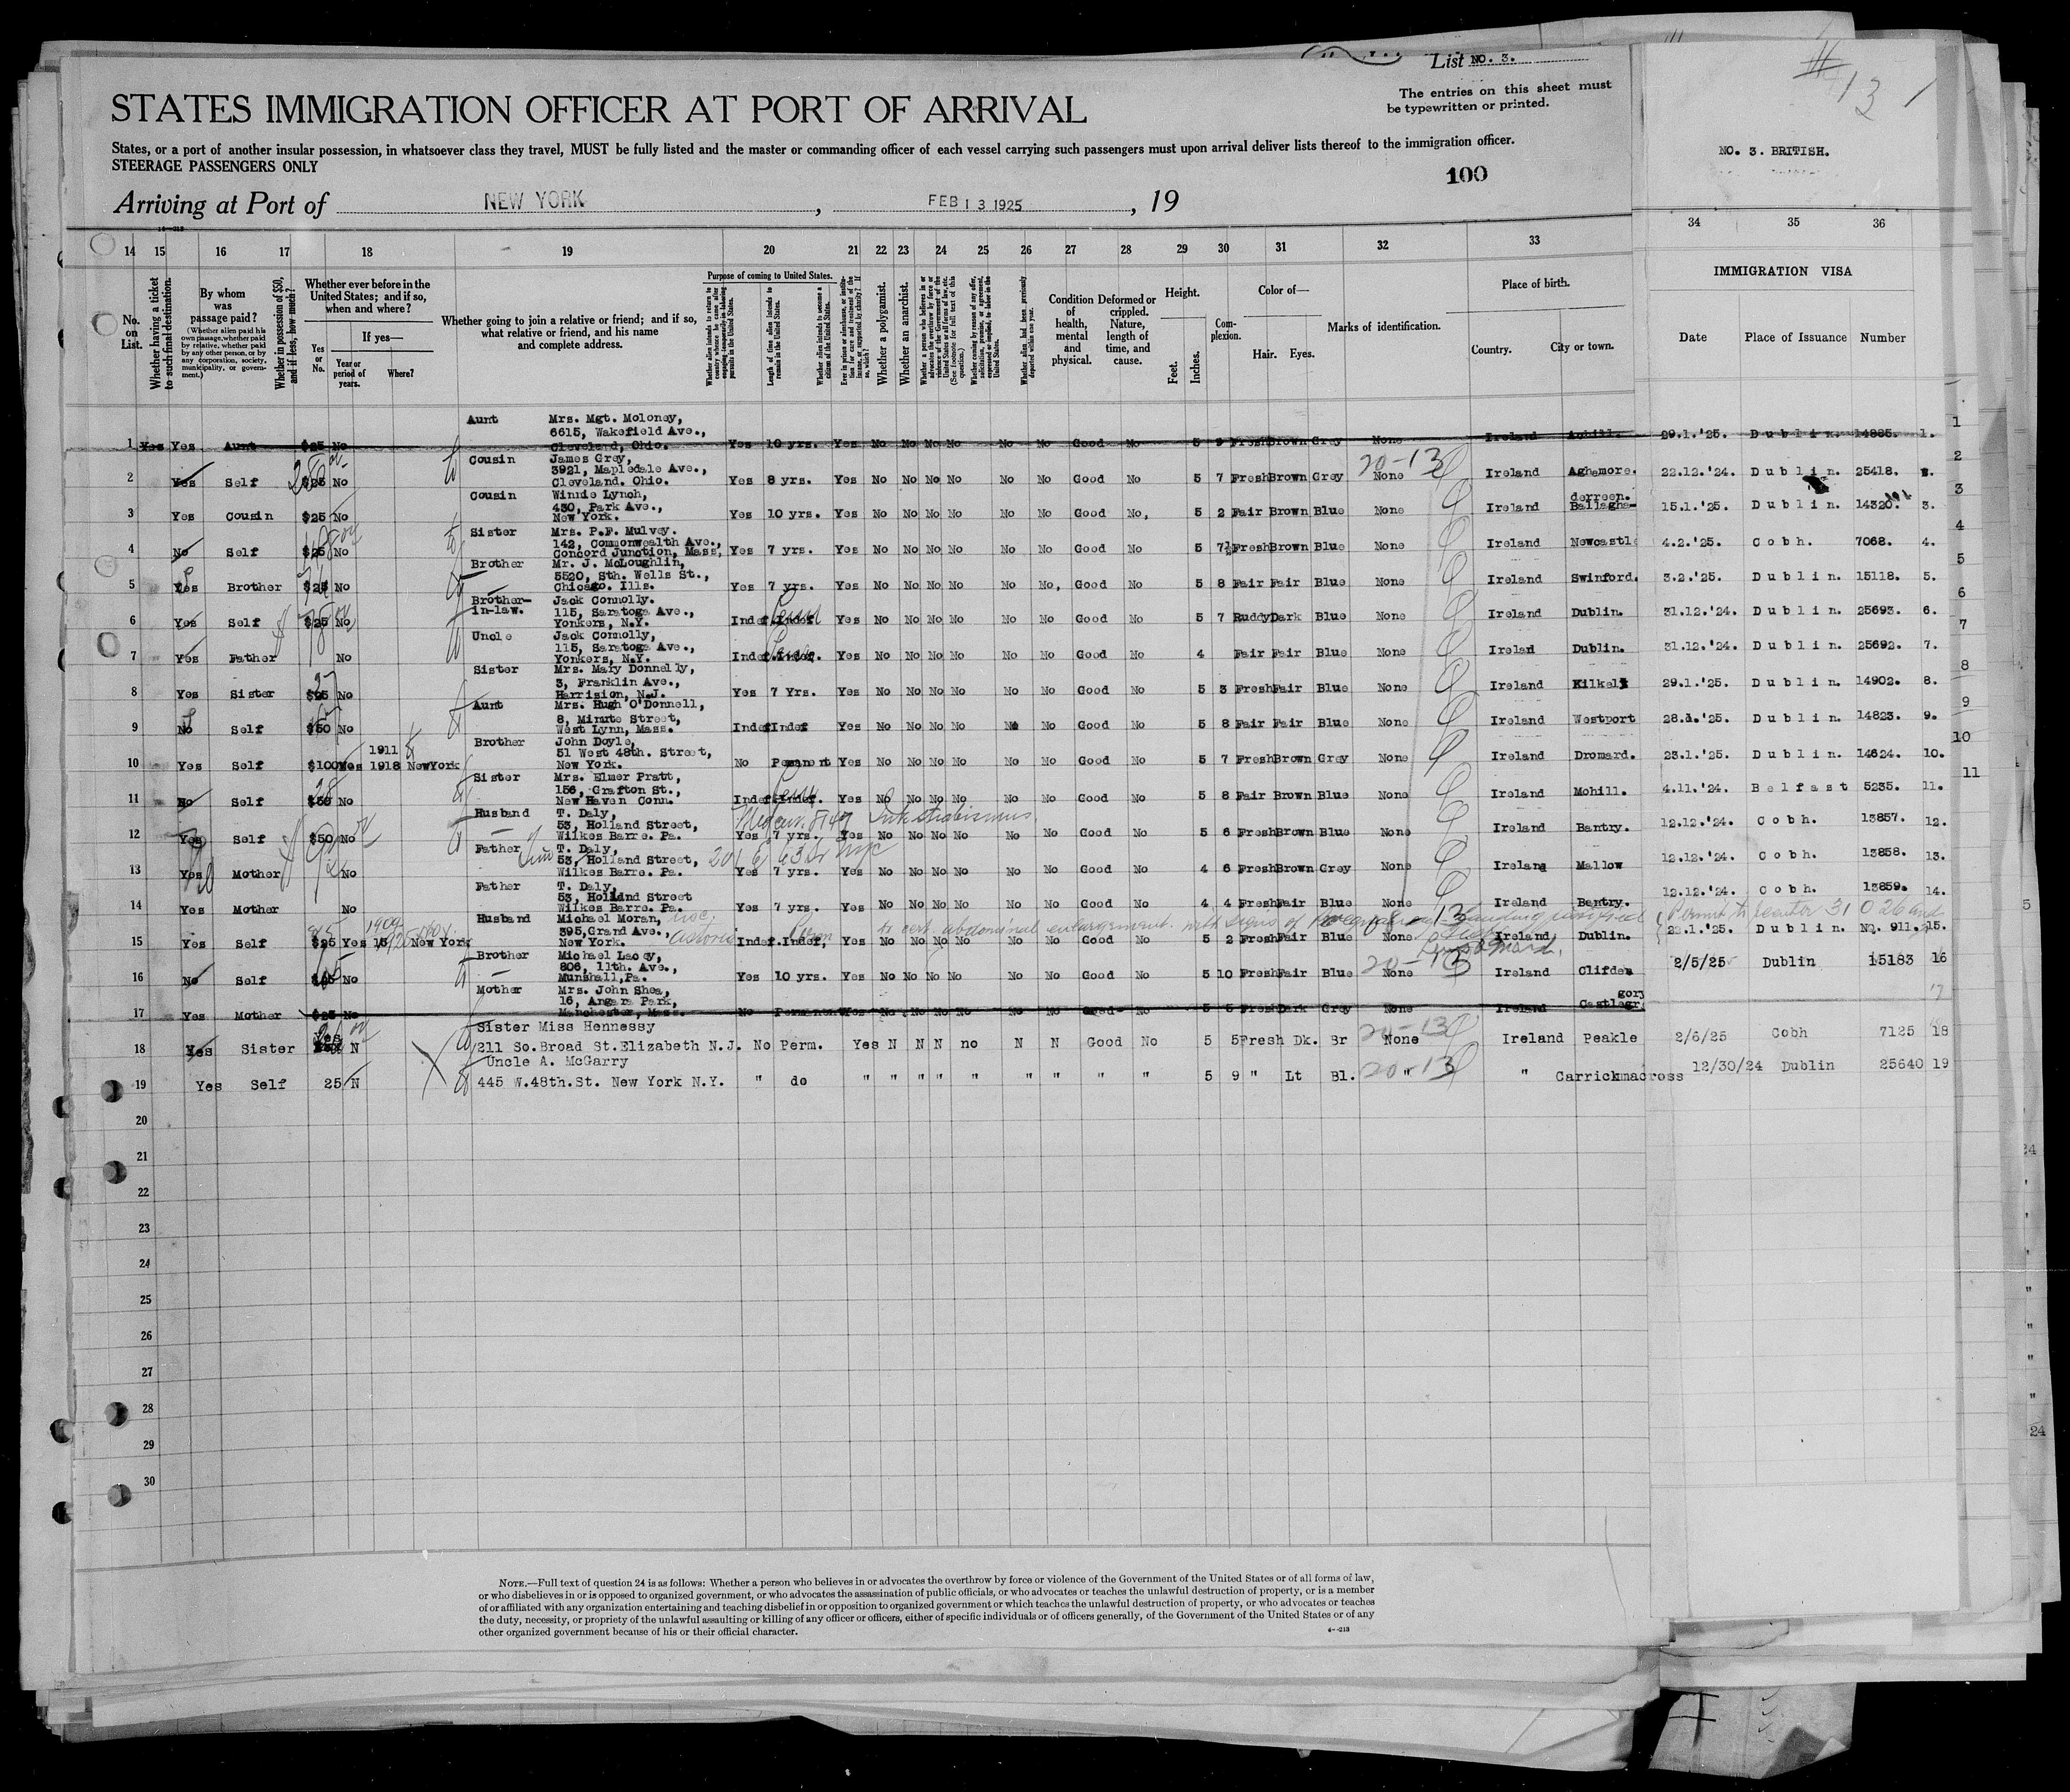 List NO. 3.
The entries on this sheet must
be typewritten or printed.
13
STATES IMMIGRATION OFFICER AT PORT OF ARRIVAL
NO. 3. BRITISH.
States, or a port of another insular possession, in whatsoever class they travel, MUST be fully listed and the master or commanding officer of each vessel carrying such passengers must upon arrival deliver lists thereof to the immigration officer.
STEERAGE PASSENGERS ONLY
100
Arriving at Port of NEW YORK , FEB 13 1925 , 19
14 15 16 17 18 19 20 21 22 23 24 25 26 27 28 29 30 31 32 33 34 35 36
No. on List.
Whether having a ticket to such final destination.
By whom was passage paid?
(Whether alien paid his own passage, whether paid by relative, whether paid by any other person, or by any corporation, society, municipality, or government.)
Whether in possession of $50, and if less, how much?
Whether ever before in the United States; and if so, when and where?
Yes or No.
If yes—
Year or period of years.
Where?
Whether going to join a relative or friend; and if so, what relative or friend, and his name and complete address.
Purpose of coming to United States.
Length of time alien intends to remain in the United States.
Whether alien intends to become a citizen of the United States.
Whether a polygamist.
Whether an anarchist.
Condition of health, mental and physical.
Deformed or crippled. Nature, length of time, and cause.
Height.
Feet.
Inches.
Complexion.
Color of—
Hair. Eyes.
Marks of identification.
Place of birth.
Country. City or town.
IMMIGRATION VISA
Date Place of Issuance Number
Aunt Mrs. Mgt. Moloney,
6615, Wakefield Ave.,
1 Yes Yes Aunt $25 No Cleveland, Ohio. Yes 10 yrs. Yes No No No No No No Good No 5 9 Fresh Brown Grey None Ireland Achill. 29.1.'25. Dublin. 14885. 1.
Cousin James Grey,
3921, Mapledale Ave.,
2 Yes Self $25 No Cleveland. Ohio. Yes 8 yrs. Yes No No No No No No Good No 5 7 Fresh Brown Grey None Ireland Aghamore. 22.12.'24. Dublin. 25418. 2.
Cousin Winnie Lynch,
430, Park Ave.,
3 Yes Cousin $25 No New York. Yes 10 yrs. Yes No No No No No No Good No, 5 2 Fair Brown Blue None Ireland Ballagha-derreen. 15.1.'25. Dublin. 14320. 3.
Sister Mrs. P.F. Mulvey.
142, Commonwealth Ave.,
4 No Self $25 No Concord Junction, Mass, Yes 7 yrs. Yes No No No No No No Good No 5 7½ Fresh Brown Blue None Ireland Newcastle 4.2.'25. Cobh. 7068. 4.
Brother Mr. J. McLoughlin,
5520, Sth. Wells St.,
5 Yes Brother $25 No Chicago. Ills. Yes 7 yrs. Yes No No No No No No, Good No 5 8 Fair Fair Blue None Ireland Swinford. 3.2.'25. Dublin. 15118. 5.
Brother-in-law. Jack Connolly.
115, Saratoga Ave.,
6 Yes Self $25 No Yonkers, N.Y. Indef. Indef Yes No No No No No No Good No 5 7 Ruddy Dark Blue None Ireland Dublin. 31.12.'24. Dublin. 25693. 6.
Uncle Jack Connolly,
115, Saratoga Ave.,
7 Yes Father No Yonkers, N.Y. Indef. Indef. Yes No No No No No No Good No 4 Fair Fair Blue None Irelad Dublin. 31.12.'24. Dublin. 25692. 7.
Sister Mrs. Mary Donnelly,
3, Franklin Ave.,
8 Yes Sister $25 No Harrision, N.J. Yes 7 Yrs. Yes No No No No No No Good No 5 3 Fresh Fair Blue None Ireland Kilkel 29.1.'25. Dublin. 14902. 8.
Aunt Mrs. Hugh O'Donnell,
8, Minute Street,
9 No Self $50 No West Lynn, Mass. Indef Indef Yes No No No No No No Good No 5 8 Fair Fair Blue None Ireland Westport 28.1.'25. Dublin. 14823. 9.
Brother John Doyle,
1911 51 West 48th. Street,
10 Yes Self $100 Yes 1918 NewYork New York. No Permanent Yes No No No No No No Good No 5 7 Fresh Brown Grey None Ireland Dromard. 23.1.'25. Dublin. 14624. 10.
Sister Mrs. Elmer Pratt,
156, Grafton St.,
11 No Self $50 No New Haven Conn. Indef. Indef. Yes No No No No No No Good No 5 8 Fair Brown Blue None Ireland Mohill. 4.11.'24. Belfast 5235. 11.
Husband T. Daly,
53, Holland Street,
12 Yes Self $50 No Wilkes Barre. Pa. Yes 7 yrs. Yes No No No No No No Good No 5 6 Fresh Brown Blue None Ireland Bantry. 12.12.'24. Cobh. 13857. 12.
Father T. Daly,
53, Holland Street,
13 Yes Mother No Wilkes Barre. Pa. Yes 7 yrs. Yes No No No No No No Good No 4 6 Fresh Brown Grey None Ireland Mallow 12.12.'24. Cobh. 13858. 13.
Father T. Daly,
53, Holland Street
14 Yes Mother No Wilkes Barre. Pa. Yes 7 yrs. Yes No No No No No No Good No 4 4 Fresh Fair Blue None Ireland Bantry. 12.12.'24. Cobh. 13859. 14.
Husband Michael Moran,
395, Grand Ave., Astoria
15 Yes Self $25 Yes New York New York. Indef. Indef, Yes No No No No No No Good No 5 2 Fresh Fair Blue None Ireland Dublin. 22.1.'25. Dublin. No. 911. 15.
Brother Michael Lacey,
806, 11th. Ave.,
16 No Self No Munshall, Pa. Yes 10 yrs. Yes No No No No No No Good No 5 10 Fresh Fair Blue None Ireland Clifden 2/5/25 Dublin 15183 16
Mother Mrs. John Shea,
16, Angara Park,
17 Yes Mother $25 No Manchester, Mass. No Permanent Yes No No No No No No Good No 5 5 Fresh Dark Grey None Ireland Castlegr gory 17
Sister Miss Hennessy
18 Yes Sister N 211 So.Broad St.Elizabeth N.J. No Perm. Yes N N N no N N Good No 5 5 Fresh Dk. Br None Ireland Peakle 2/6/25 Cobh 7125 18
Uncle A. McGarry
19 Yes Self 25 N 445 W.48th.St. New York N.Y. " do " " " " " " " " " 5 9 " Lt Bl. " " Carrickmacross 12/30/24 Dublin 25640 19
20
21
22
23
24
25
26
27
28
29
30
NOTE.—Full text of question 24 is as follows: Whether a person who believes in or advocates the overthrow by force or violence of the Government of the United States or of all forms of law,
or who disbelieves in or is opposed to organized government, or who advocates the assassination of public officials, or who advocates or teaches the unlawful destruction of property, or is a member
of or affiliated with any organization entertaining and teaching disbelief in or opposition to organized government or which teaches the unlawful destruction of property, or who advocates or teaches
the duty, necessity, or propriety of the unlawful assaulting or killing of any officer or officers, either of specific individuals or of officers generally, of the Government of the United States or of any
other organized government because of his or their official character.